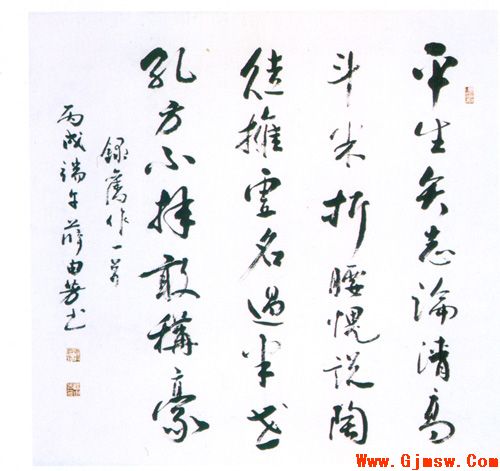 平生矢志論清高
斗米折腰愧說陶
徒擁虛名過半世
孔方不拜敢稱豪
錄舊作一首
丙戌端午薛由芳书
Www.Gjmsw.Com